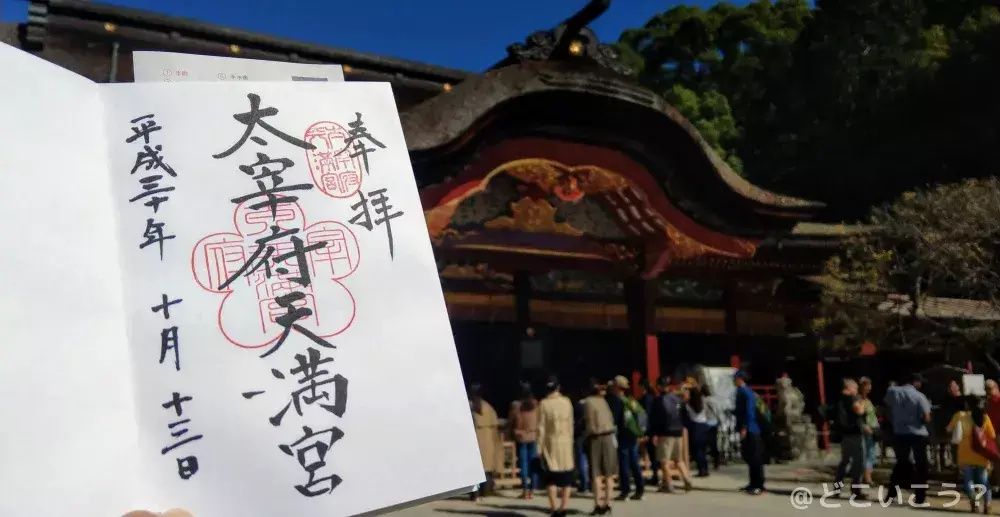 奉拝
太宰府天満宮
平成三十年 十月 十三日
@どこいこう？